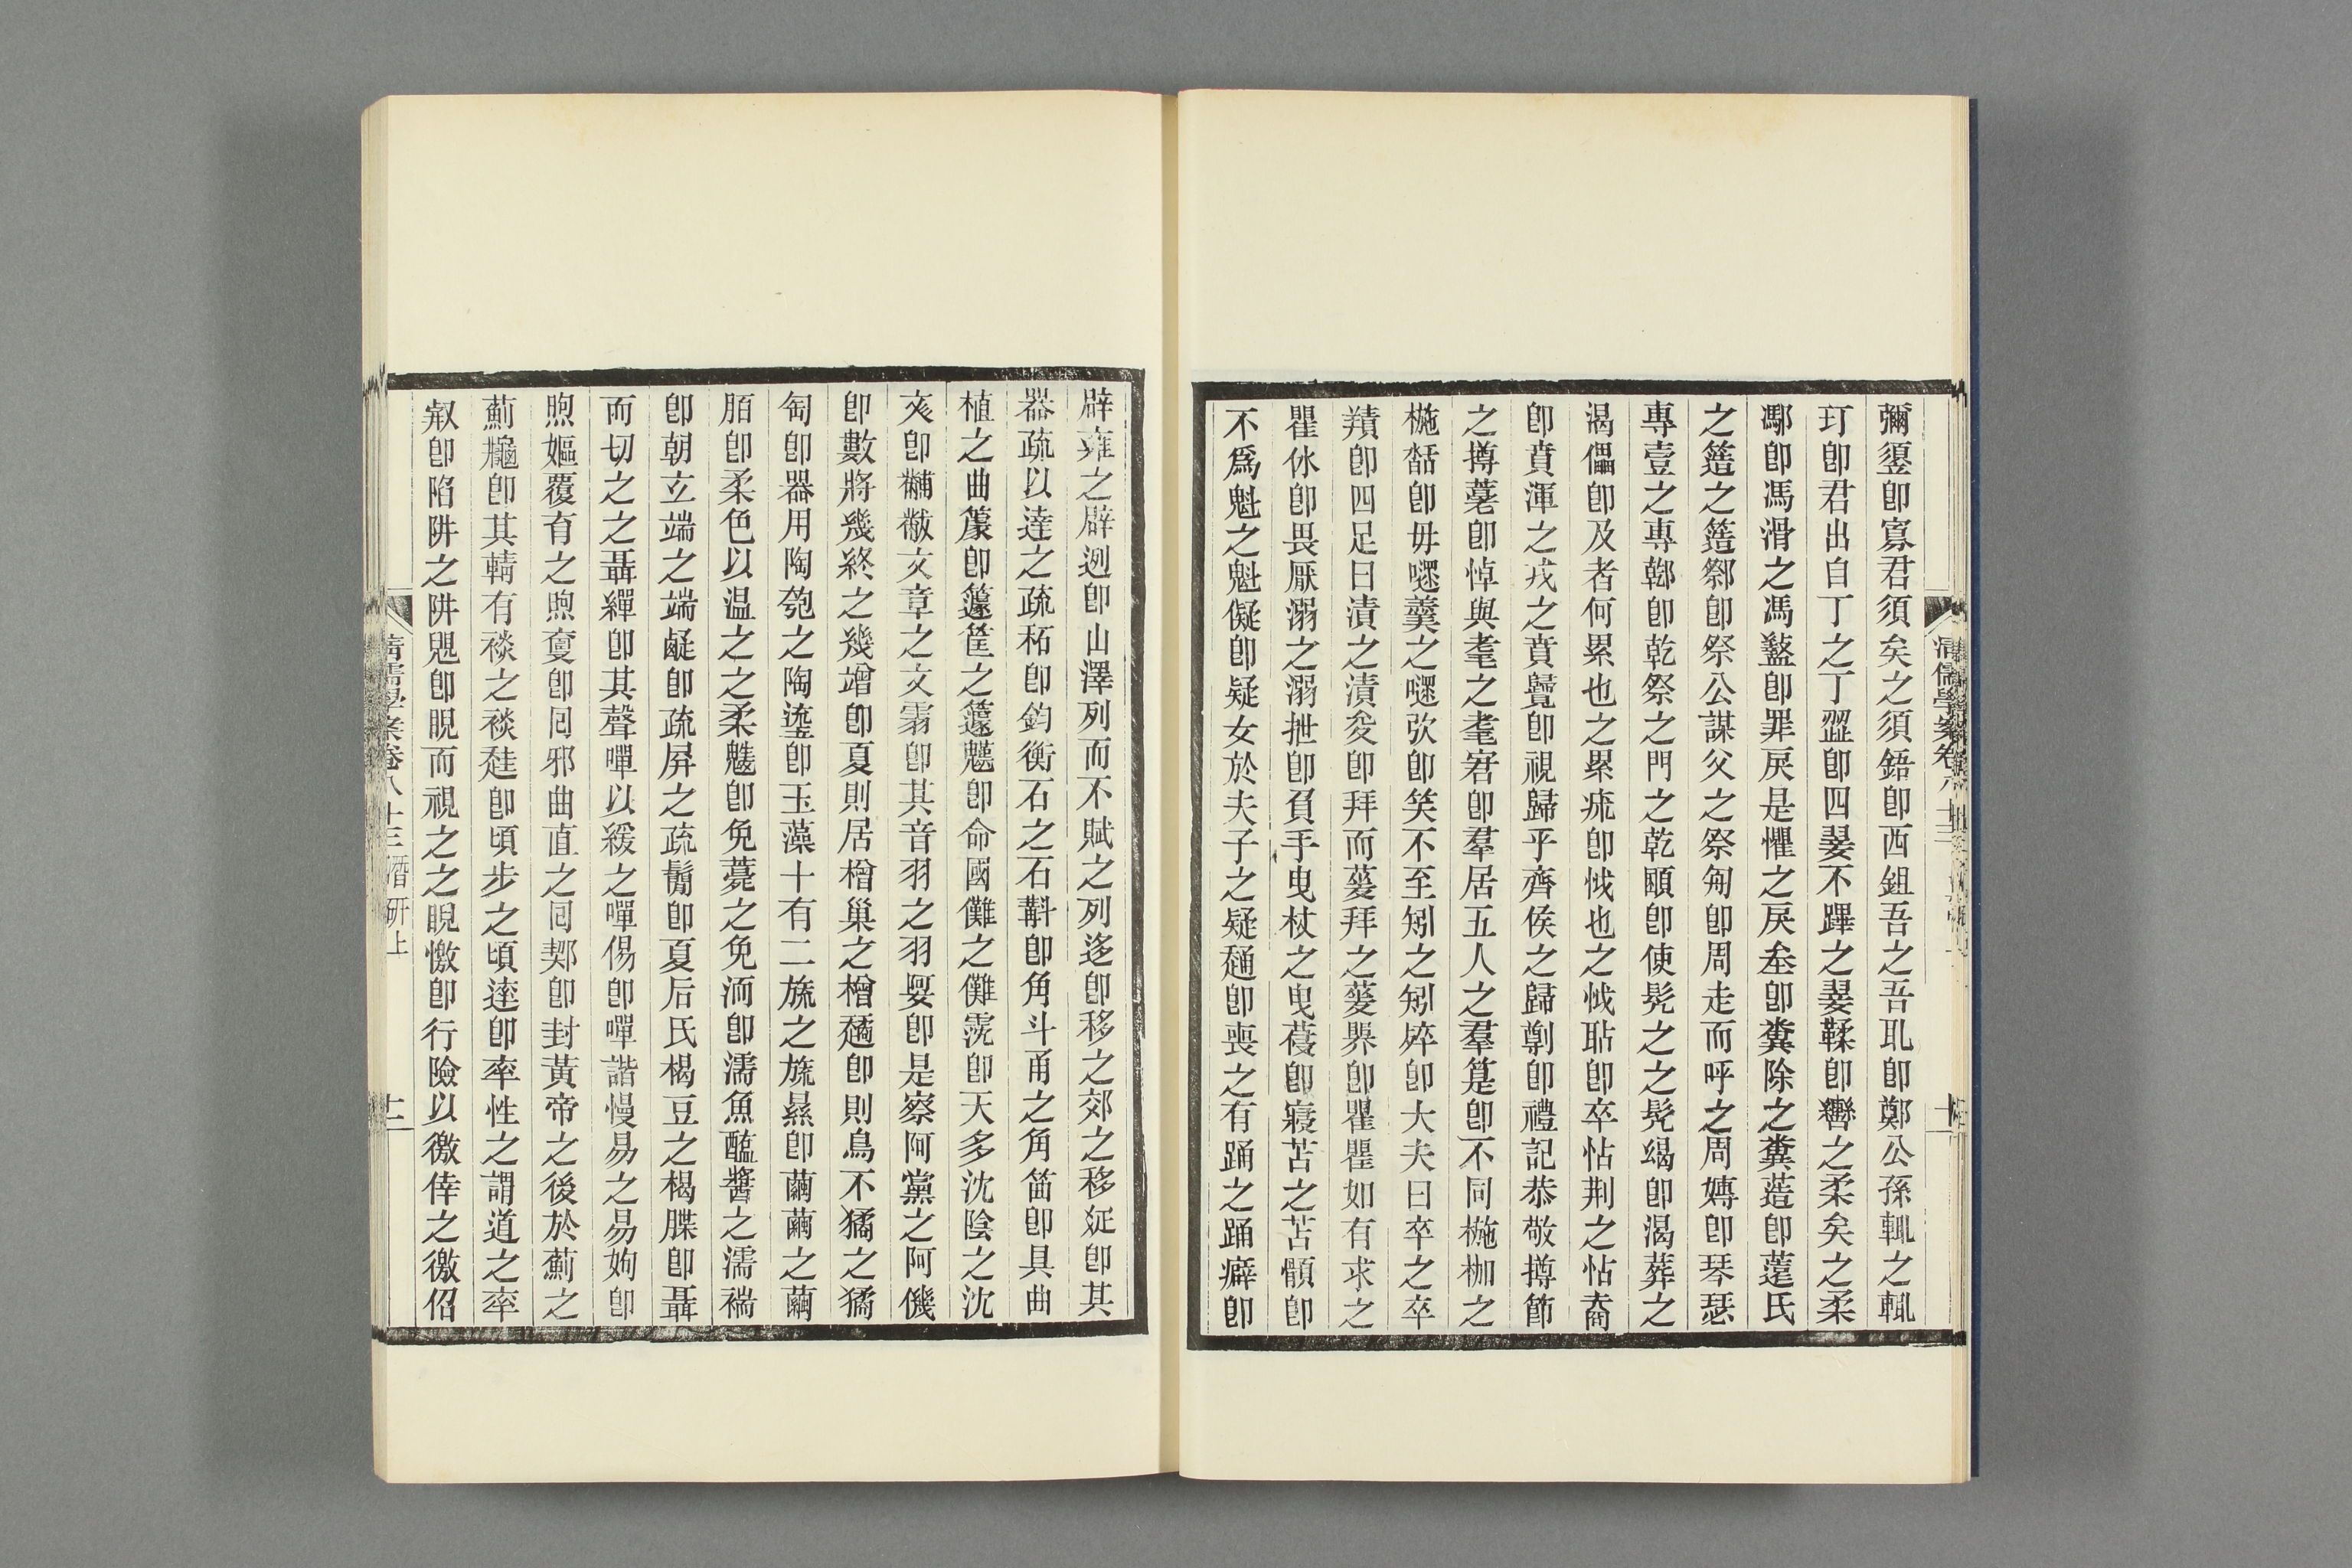 彌盨卽寡君須矣之須鋙卽西鉏吾之吾耴卽鄭公孫輒之輒
玎卽君出自丁之丁歰卽四翣不蹕之翣鞣卽轡之柔矣之柔
鄢卽馮滑之馮盩卽罪戾是懼之戾坴卽糞除之糞薳卽薳氏
之簉之簉鄒卽祭公謀父之祭匊卽周走而呼之周嫥卽琴瑟
專壹之專鶾卽乾祭之門之乾頤卽使髡之之髡竭卽渴葬之
渴儡卽及者何累也之累㾕卽㤜也之㤜聐卽卒怗荆之怗奫
卽賁渾之戎之賁覺卽視歸乎齊侯之歸剸卽禮記恭敬撙節
之撙䓬卽悼與耄之耄宭卽羣居五人之羣篹卽不同椸枷之
椸䑜卽毋嚃羹之嚃欥卽笑不至矧之矧㷄卽大夫曰卒之卒
㱴卽四足曰漬之漬夎卽拜而蓌拜之蓌界卽瞿瞿如有求之
瞿㶷卽畏厭溺之溺抴卽負手曳杖之曳葠卽寢苫之苫顝卽
不爲魁之魁儗卽疑女於夫子之疑䞈卽喪之有踊之踊癖卽
辟雍之辟迾卽山澤列而不賦之列迻卽移之郊之移㢟卽其
器疏以達之疏䄷卽鈞衡石之石斠卽角斗甬之角笛卽具曲
植之曲籧卽籧筐之籧魕卽命國儺之儺霃卽天多沈陰之沈
㡭卽黼黻文章之文䨒卽其音羽之羽婜卽是察阿黨之阿僟
卽數將幾終之幾竲卽夏則居橧巢之橧䟏卽則鳥不獝之獝
匋卽器用陶匏之陶瑬卽玉藻十有二旒之旒㬎卽繭繭之繭
脜卽柔色以温之之柔䰋卽免薨之免洏卽濡魚醢醬之濡褍
卽朝立端之端䟽卽疏屛之疏鬝卽夏后氏楬豆之楬牒卽聶
而切之之聶繟卽其聲嘽以緩之嘽傷卽嘽諧慢易之易姁卽
煦嫗覆有之煦奞卽囘邪曲直之囘鄈卽封黃帝之後於薊之
薊䶜卽其輤有裧之裧趌卽頃步之頃達卽率性之謂道之率
叡卽陷阱之阱覞卽睨而視之之睨憿卽行險以徼倖之徼佋
清儒學案卷八十三 潛研上
十二